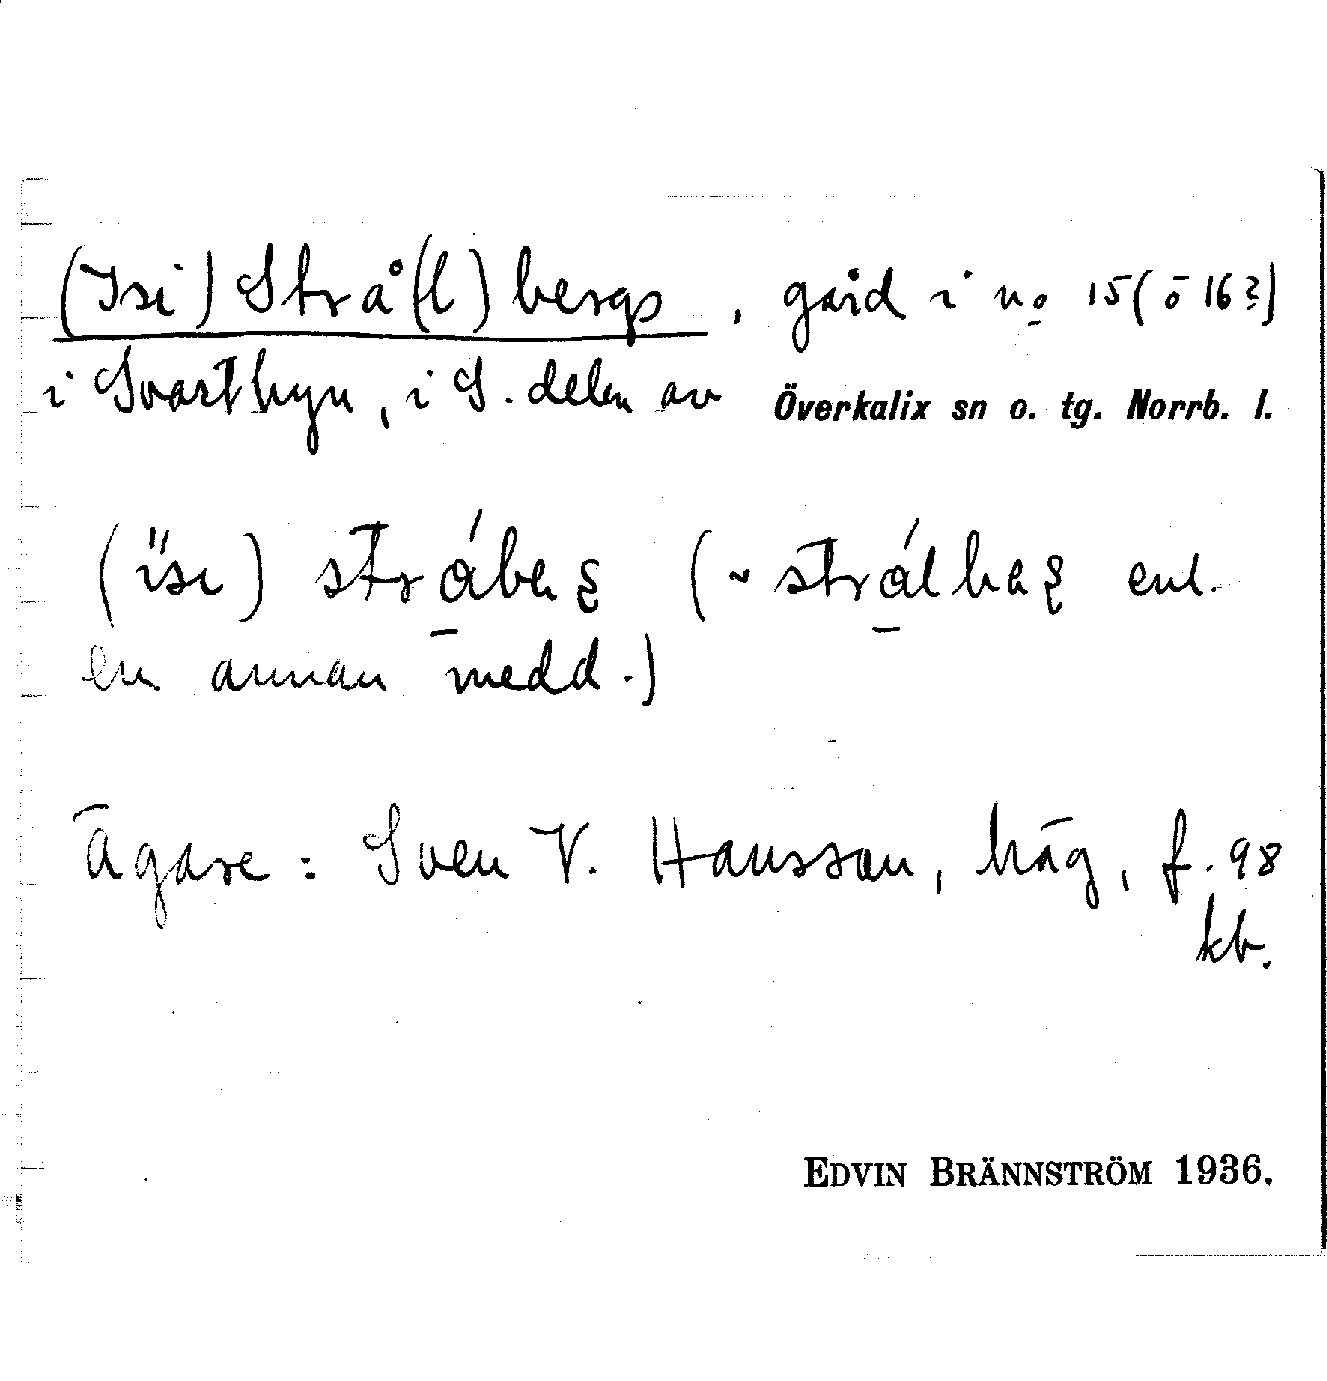 (Isi) Strå(l)bergs, gård i no 15 (o 16?)
i Svartbyn, i S. delen av Överkalix sn o. tg. Norrb. l.
(ise) stråbeʂ (~ strålbeʂ enl.
en annan medd.)
Ägare: Sven V. Hansson, häg, f. 98
kb.
EDVIN BRÄNNSTRÖM 1936.